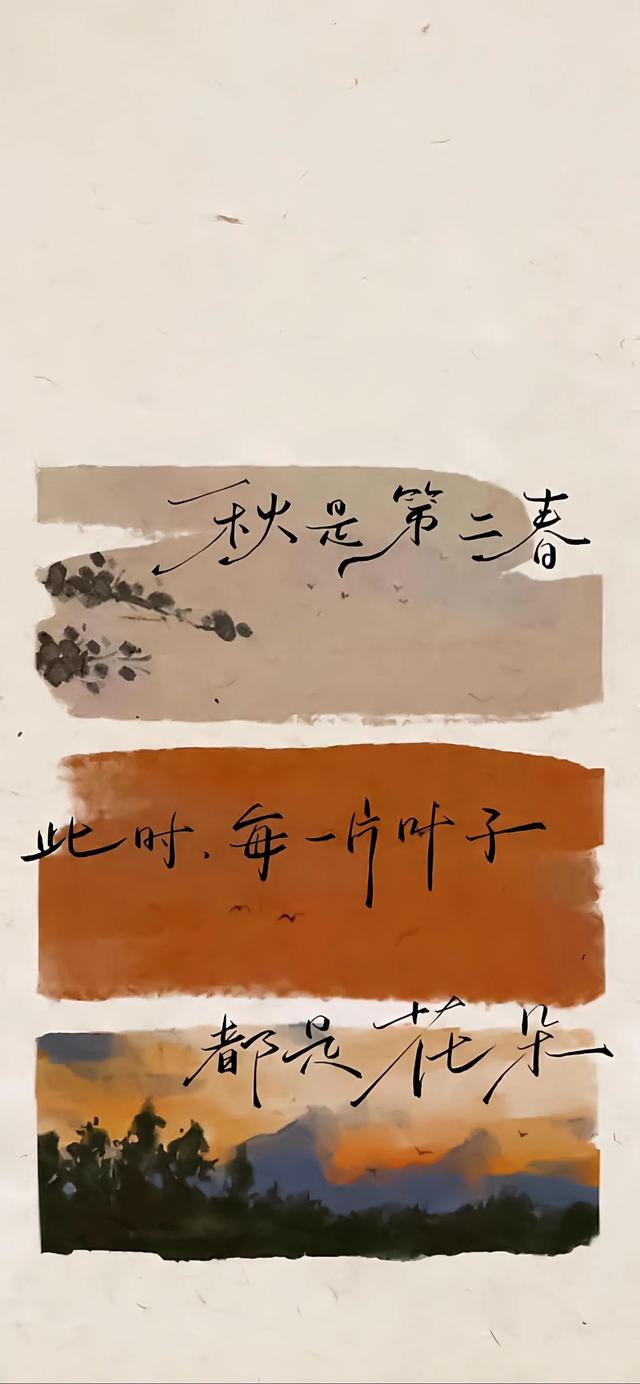 秋是第二春
此时，每一片叶子
都是花朵